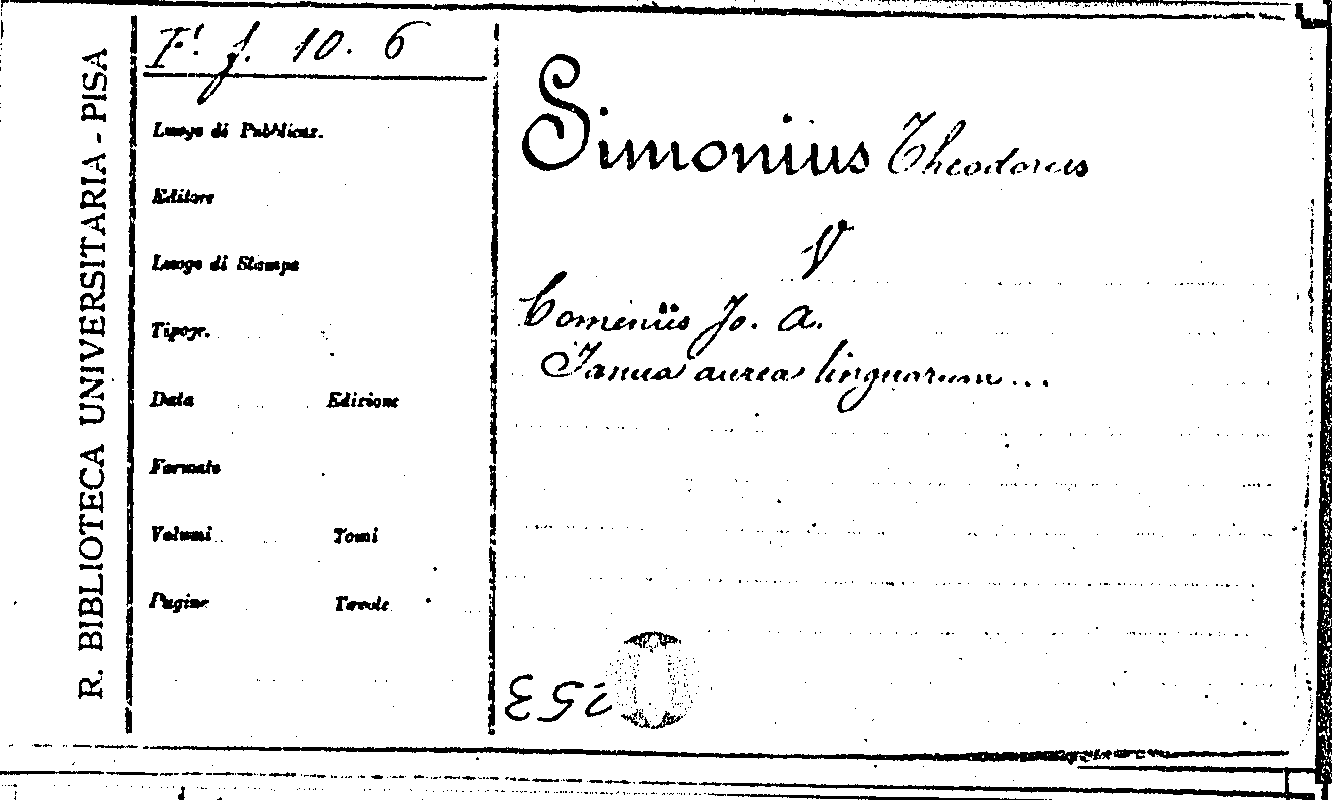 R. BIBLIOTECA UNIVERSITARIA - PISA
F. f. 10. 6
Luogo di Pubblicaz.
Editore
Luogo di Stampa
Tipogr.
Data Edizione
Formato
Volumi Tomi
Pagine Tavole
Simonius Theodorus
V
Comeniïs Jo. A.
Janua aurea linguarum...